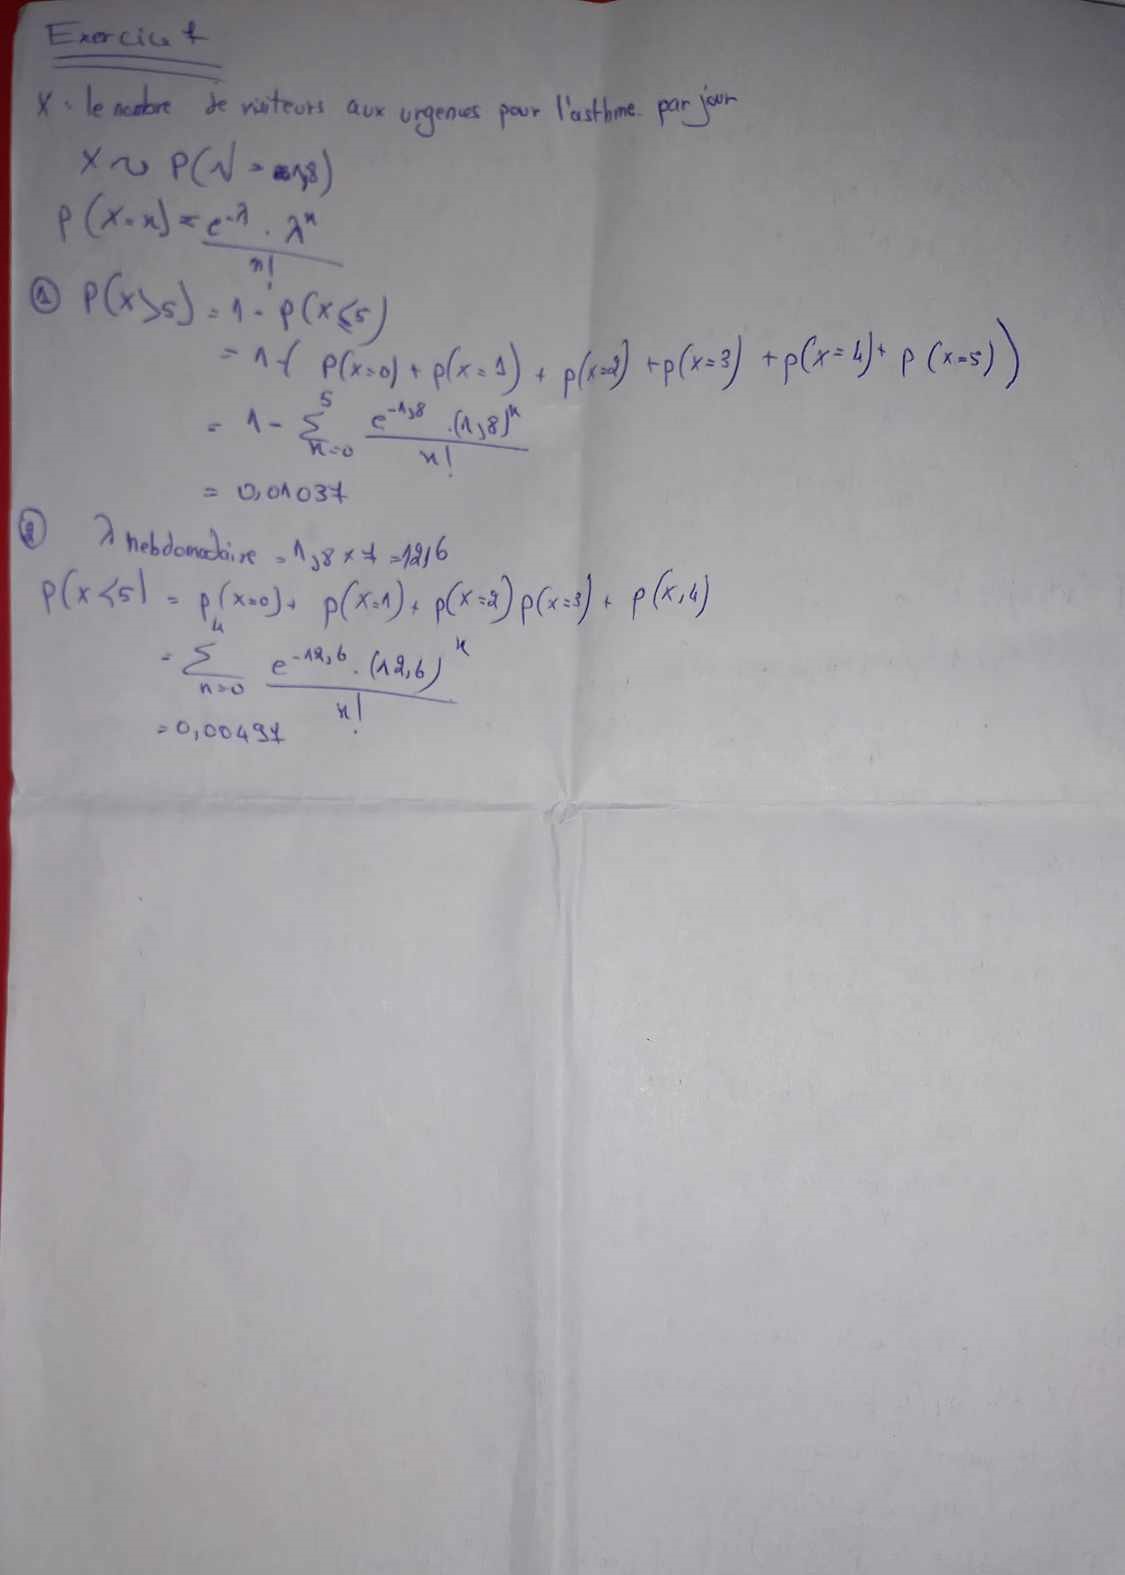 Exercice 1
X : le nombre de visiteurs aux urgences pour l'asthme par jour
X ~ P(λ = 1,8)
P(X=x) = e^-λ . λ^x / x!
① P(X>5) = 1 - P(X≤5)
= 1 - ( P(X=0) + P(X=1) + P(X=2) + P(X=3) + P(X=4) + P(X=5) )
= 1 - Σ_{x=0}^{5} e^-1,8 . (1,8)^x / x!
= 0,01037
② λ hebdomadaire = 1,8 x 7 = 12,6
P(X<5) = P(X=0) + P(X=1) + P(X=2) P(X=3) + P(X,4)
= Σ_{x=0}^{4} e^-12,6 . (12,6)^x / x!
= 0,00497